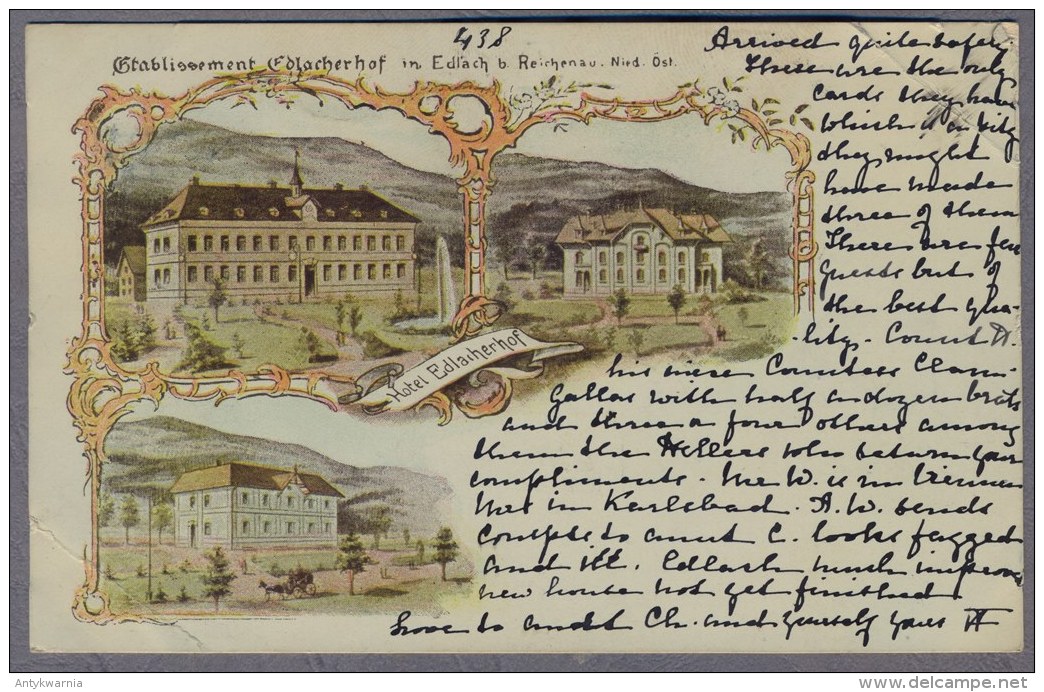 438
Etablissement Edlacherhof in Edlach b. Reichenau. Nied. Öst.
Hotel Edlacherhof
Arrived quite safely.
These are the only
cards they have
which is a pity
they might
have made
three of them
There are few
guests but of
the best qua-
-lity. Count A.
his niece Comtess Clam-
Gallas with half a dozen brats
and three or four others among
them the Hellers who return your
compliments. Mr W. is in Vienna
Mrs in Karlsbad. A. W. sends
compts to aunt C. looks fagged
and ill. Edlach much improved
new house not yet finished.
Love to aunt Ch. and yourself yours
Antykwarnia
delcampe.net